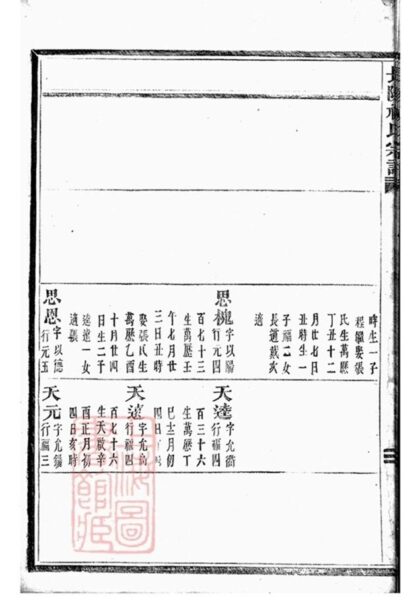 時生一子
程繼娶張
氏生萬曆
丁丑十二
月廿七日
丑時生一
子福二女
長適戴次
適
思槐字以陽
行元四
百七十三
生萬曆壬
午七月廿
三日丑時
娶張氏生
萬曆乙酉
十月廿四
日生二子
達遠一女
適張
思恩字以德
行元五
天達字允衢
行福四
百三十六
生萬曆丁
巳十二月初
四日
天遠字允
行福四
百七十六
生天啟辛
酉正月初
四日亥時
天元字允
行福三